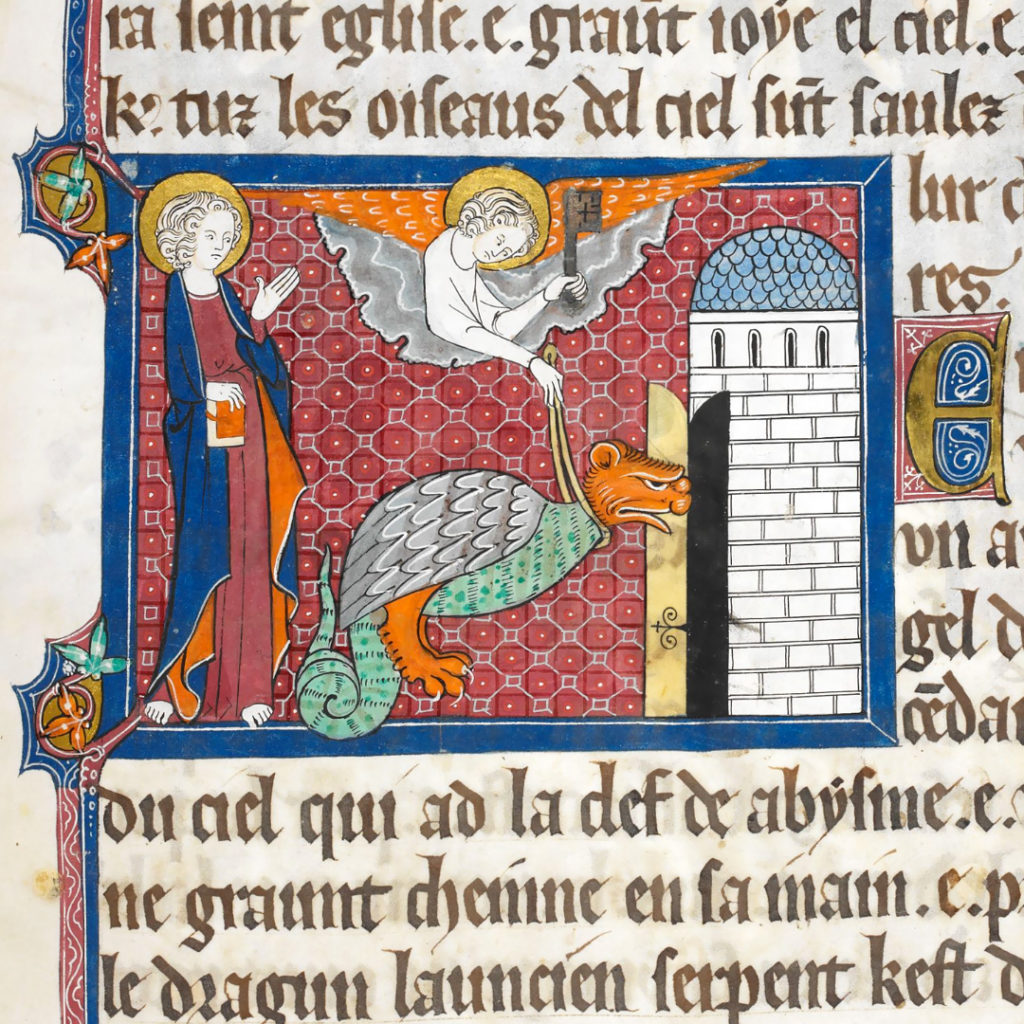 ra seint eglise.e. graūt ioẏe el ciel.e.
tuz les oiseaus del ciel sūt saulez
lur
res.
E
vn
gel
du ciel qui ad la clef de abẏsme.e.
ne graunt cheinne en sa main.e.
le dragun launcien serpent kest